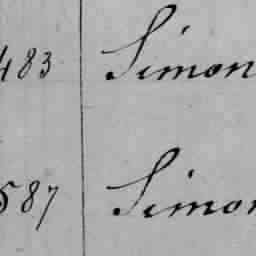 483 Simon
587 Simon